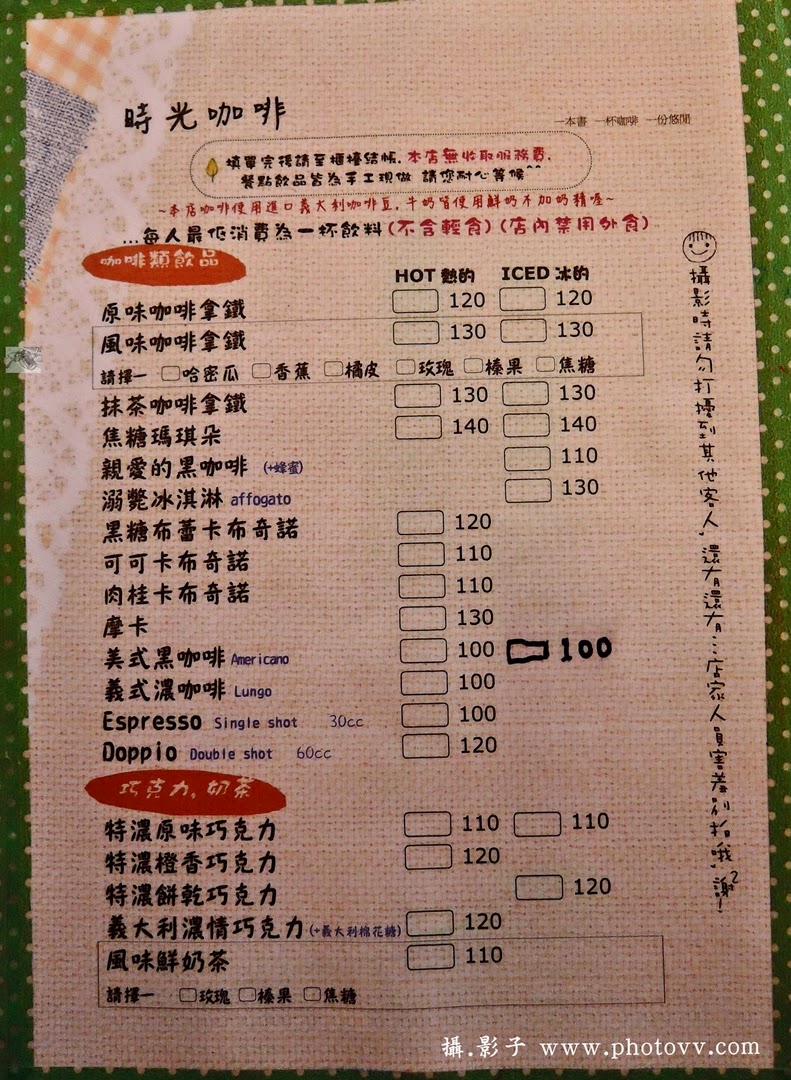 時光咖啡
一本書 一杯咖啡 一份悠閒
填單完後請至櫃檯結帳. 本店無收取服務費.
餐點飲品皆為手工現做 請您耐心等候^^
~本店咖啡使用進口義大利咖啡豆, 牛奶皆使用鮮奶不加奶精喔~
...每人最低消費為一杯飲料(不含輕食)(店內禁用外食)
咖啡類飲品
HOT 熱的 ICED 冰的
原味咖啡拿鐵 120 120
風味咖啡拿鐵 130 130
請擇一 哈密瓜 香蕉 橘皮 玫瑰 榛果 焦糖
抹茶咖啡拿鐵 130 130
焦糖瑪琪朵 140 140
親愛的黑咖啡 (+蜂蜜) 110
溺斃冰淇淋 affogato 130
黑糖布蕾卡布奇諾 120
可可卡布奇諾 110
肉桂卡布奇諾 110
摩卡 130
美式黑咖啡 Americano 100 100
義式濃咖啡 Lungo 100
Espresso Single shot 30cc 100
Doppio Double shot 60cc 120
巧克力. 奶茶
特濃原味巧克力 110 110
特濃橙香巧克力 120
特濃餅乾巧克力 120
義大利濃情巧克力 (+義大利棉花糖) 120
風味鮮奶茶 110
請擇一 玫瑰 榛果 焦糖
攝影時請勿打擾到其他客人, 還有還有:: 店家人員害羞別拍哦, 謝2!
攝.影子 www.photovv.com